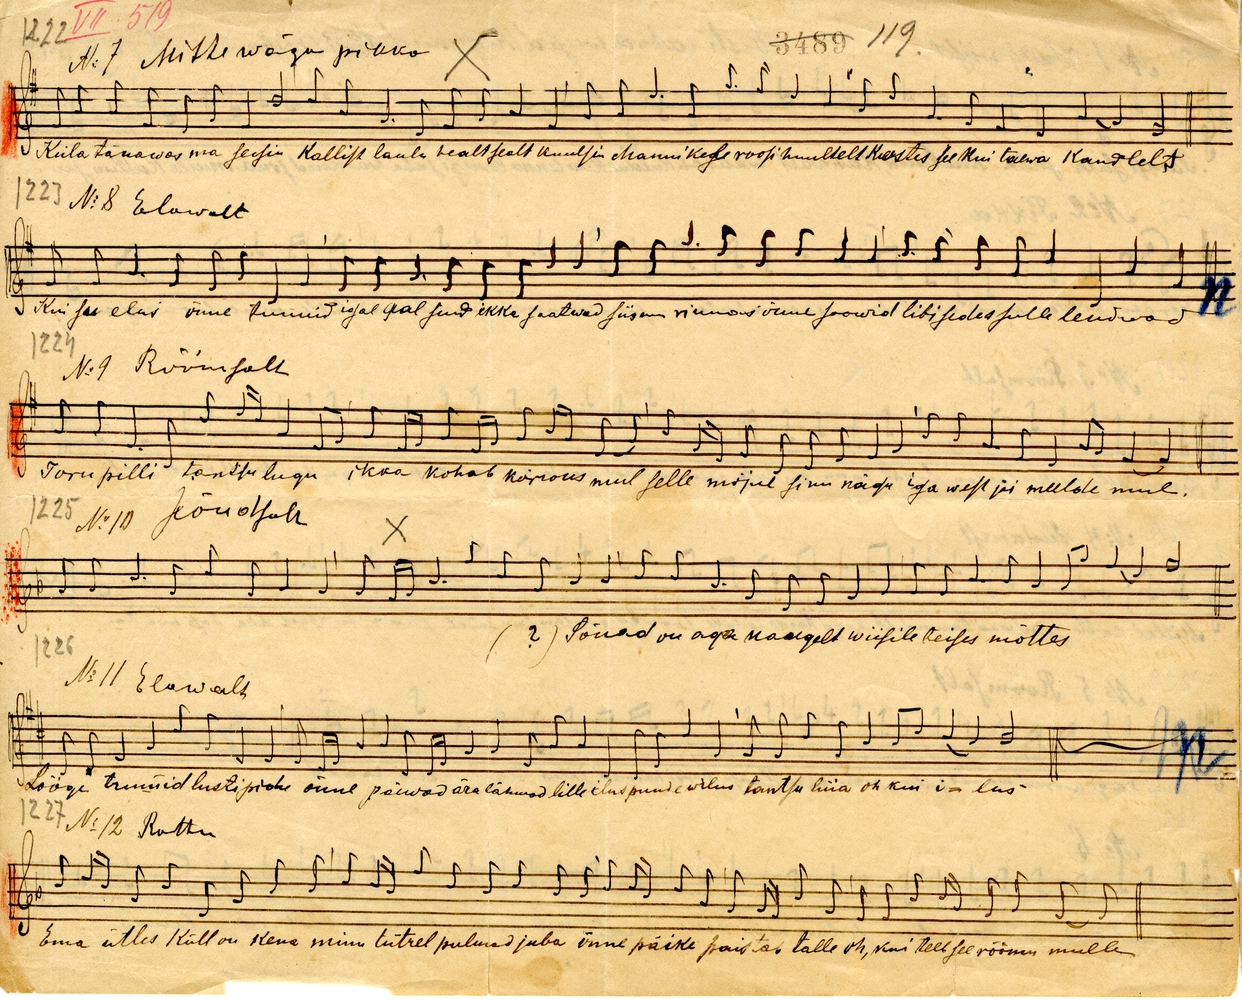 1222 VII 519 3489 119.
№ 7 Mitte wäga pikka X
Küla tänawas ma seisin Kallist laulu healt sealt kuulsin Mannikese roosi huultelt Kostis see kui taewa Kandlelt
1223 № 8 Elawalt
Kui sa elus õnne tunnid igal aal sind ikka saatwad siis mu rinnas õnne soowid libisedes sulle lendwad
n
1224
№ 9 Rõõmsalt
Toru pilli tantsu lugu ikka kohab kõrwus mul selle mõjul sinu nägu iga west jäi meelde mul.
1225 № 10 X
(?) Sõnad on aga kaugelt wiisile teises mõttes
1226
№ 11 Elawalt
Lõõgi tunnid lusti pidu õnne päewad ära lähwad lille ilus puude wilus tantsu lüia oh kui i= lus
n
1227 № 12 Ruttu
Ema ütles Küll on kena minu tütrel pulmad juba õnne päike paistab talle oh, kui teeb see rõõmu mulle